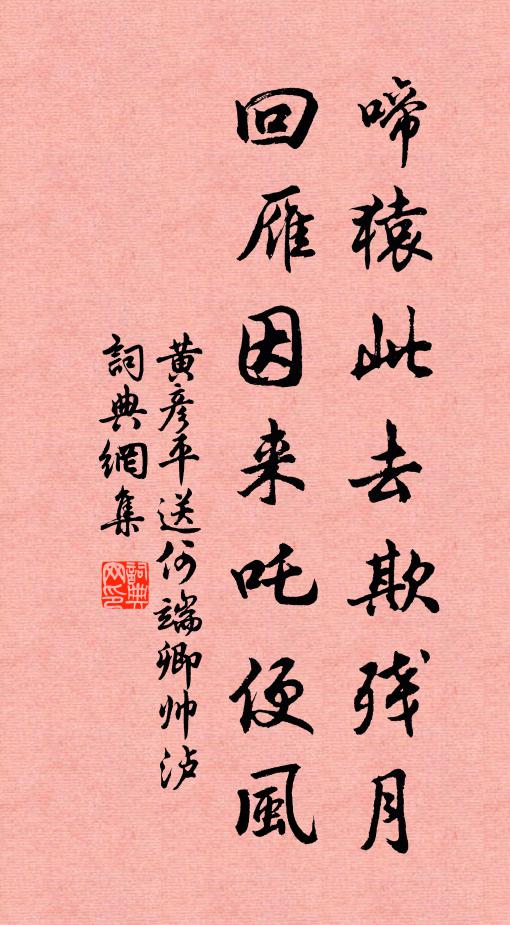 啼猿此去欺残月
回雁因来吒便風
黄彦平送何端卿帅泸
詞典網集
詞典網印